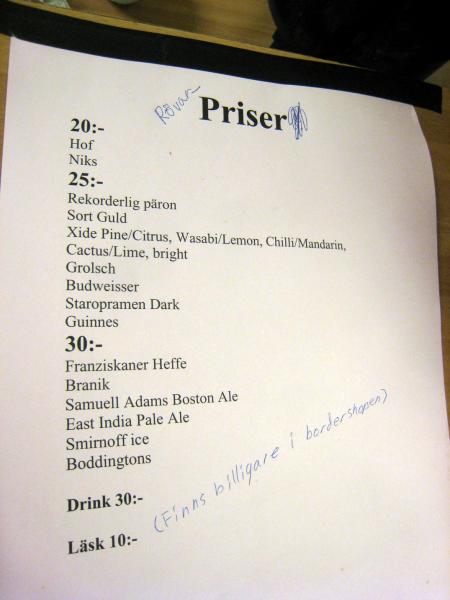 Rövar- Priser
20:-
Hof
Niks
25:-
Rekorderlig päron
Sort Guld
Xide Pine/Citrus, Wasabi/Lemon, Chilli/Mandarin,
Cactus/Lime, bright
Grolsch
Budweisser
Staropramen Dark
Guinnes
30:-
Franziskaner Heffe
Branik
Samuell Adams Boston Ale
East India Pale Ale
Smirnoff ice
Boddingtons
Drink 30:-
(Finns billigare i bordershopen)
Läsk 10:-